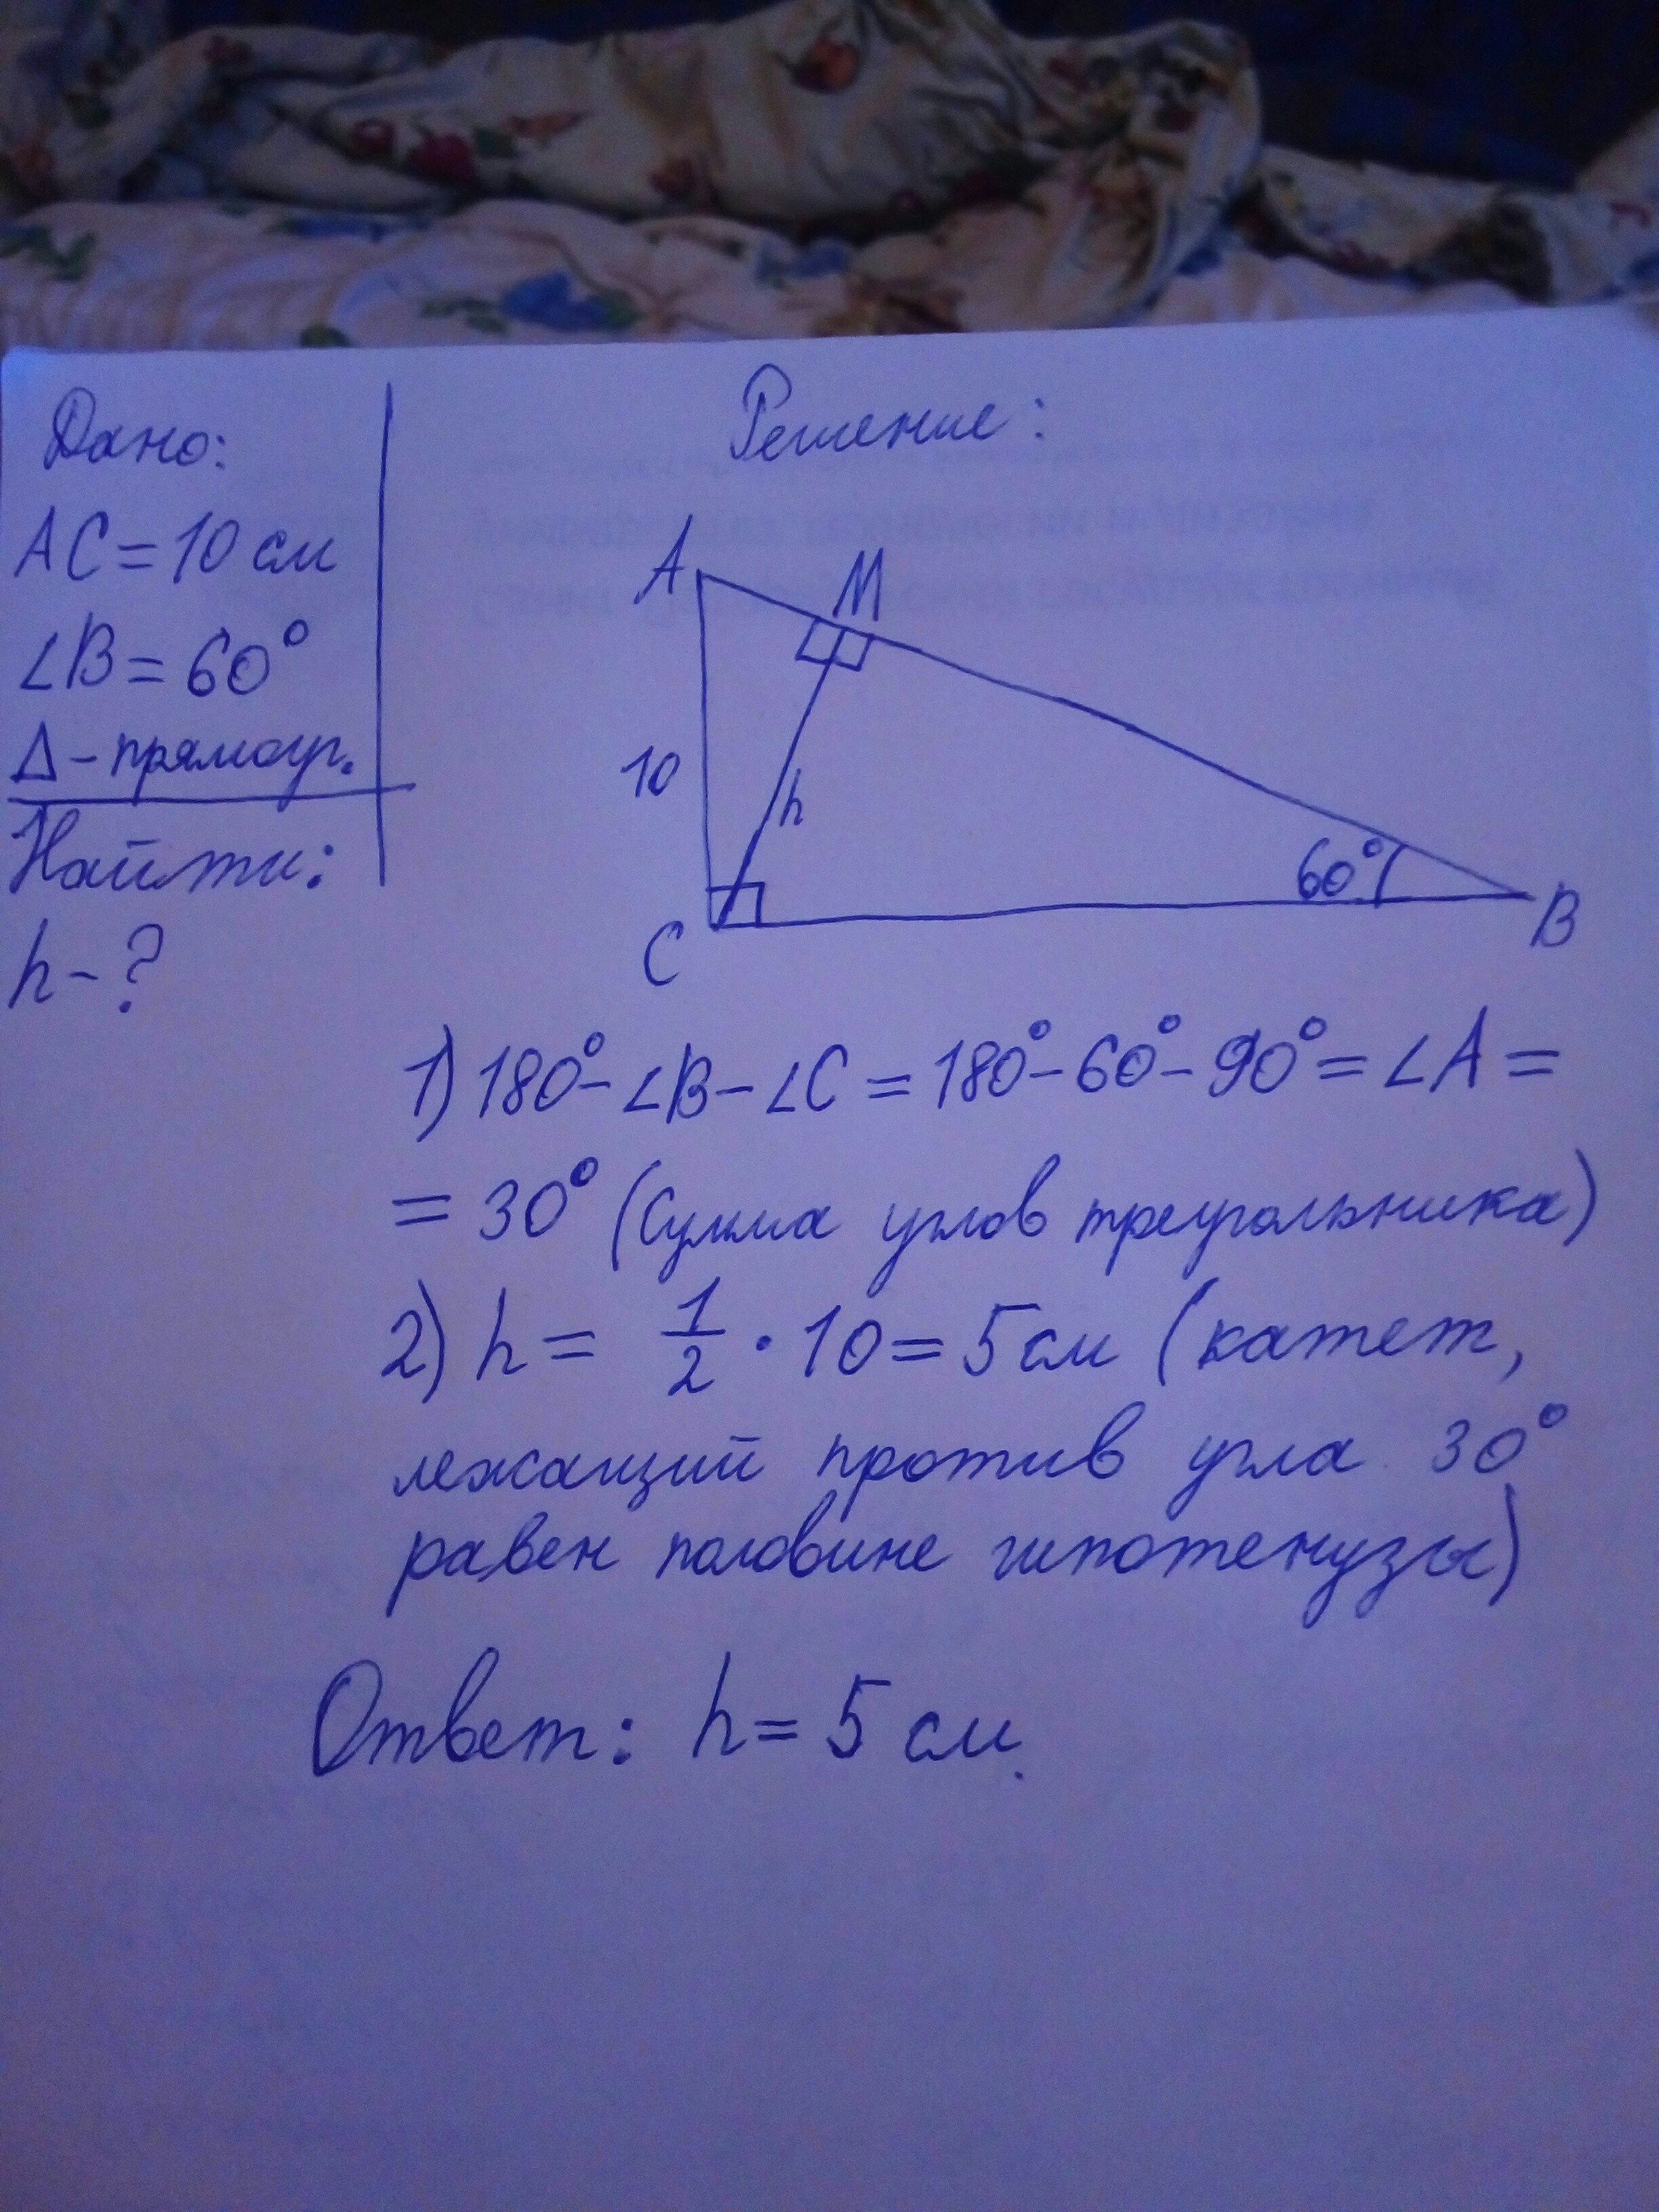 Дано:
AC = 10 см
∠B = 60°
Δ - прямоуг.
Найти:
h - ?
Решение:
A
M
10
h
60°
C
B
1) 180° - ∠B - ∠C = 180° - 60° - 90° = ∠A =
= 30° (Сумма углов треугольника)
2) h = 1/2 · 10 = 5 см (катет,
лежащий против угла 30°
равен половине гипотенузы)
Ответ: h = 5 см.